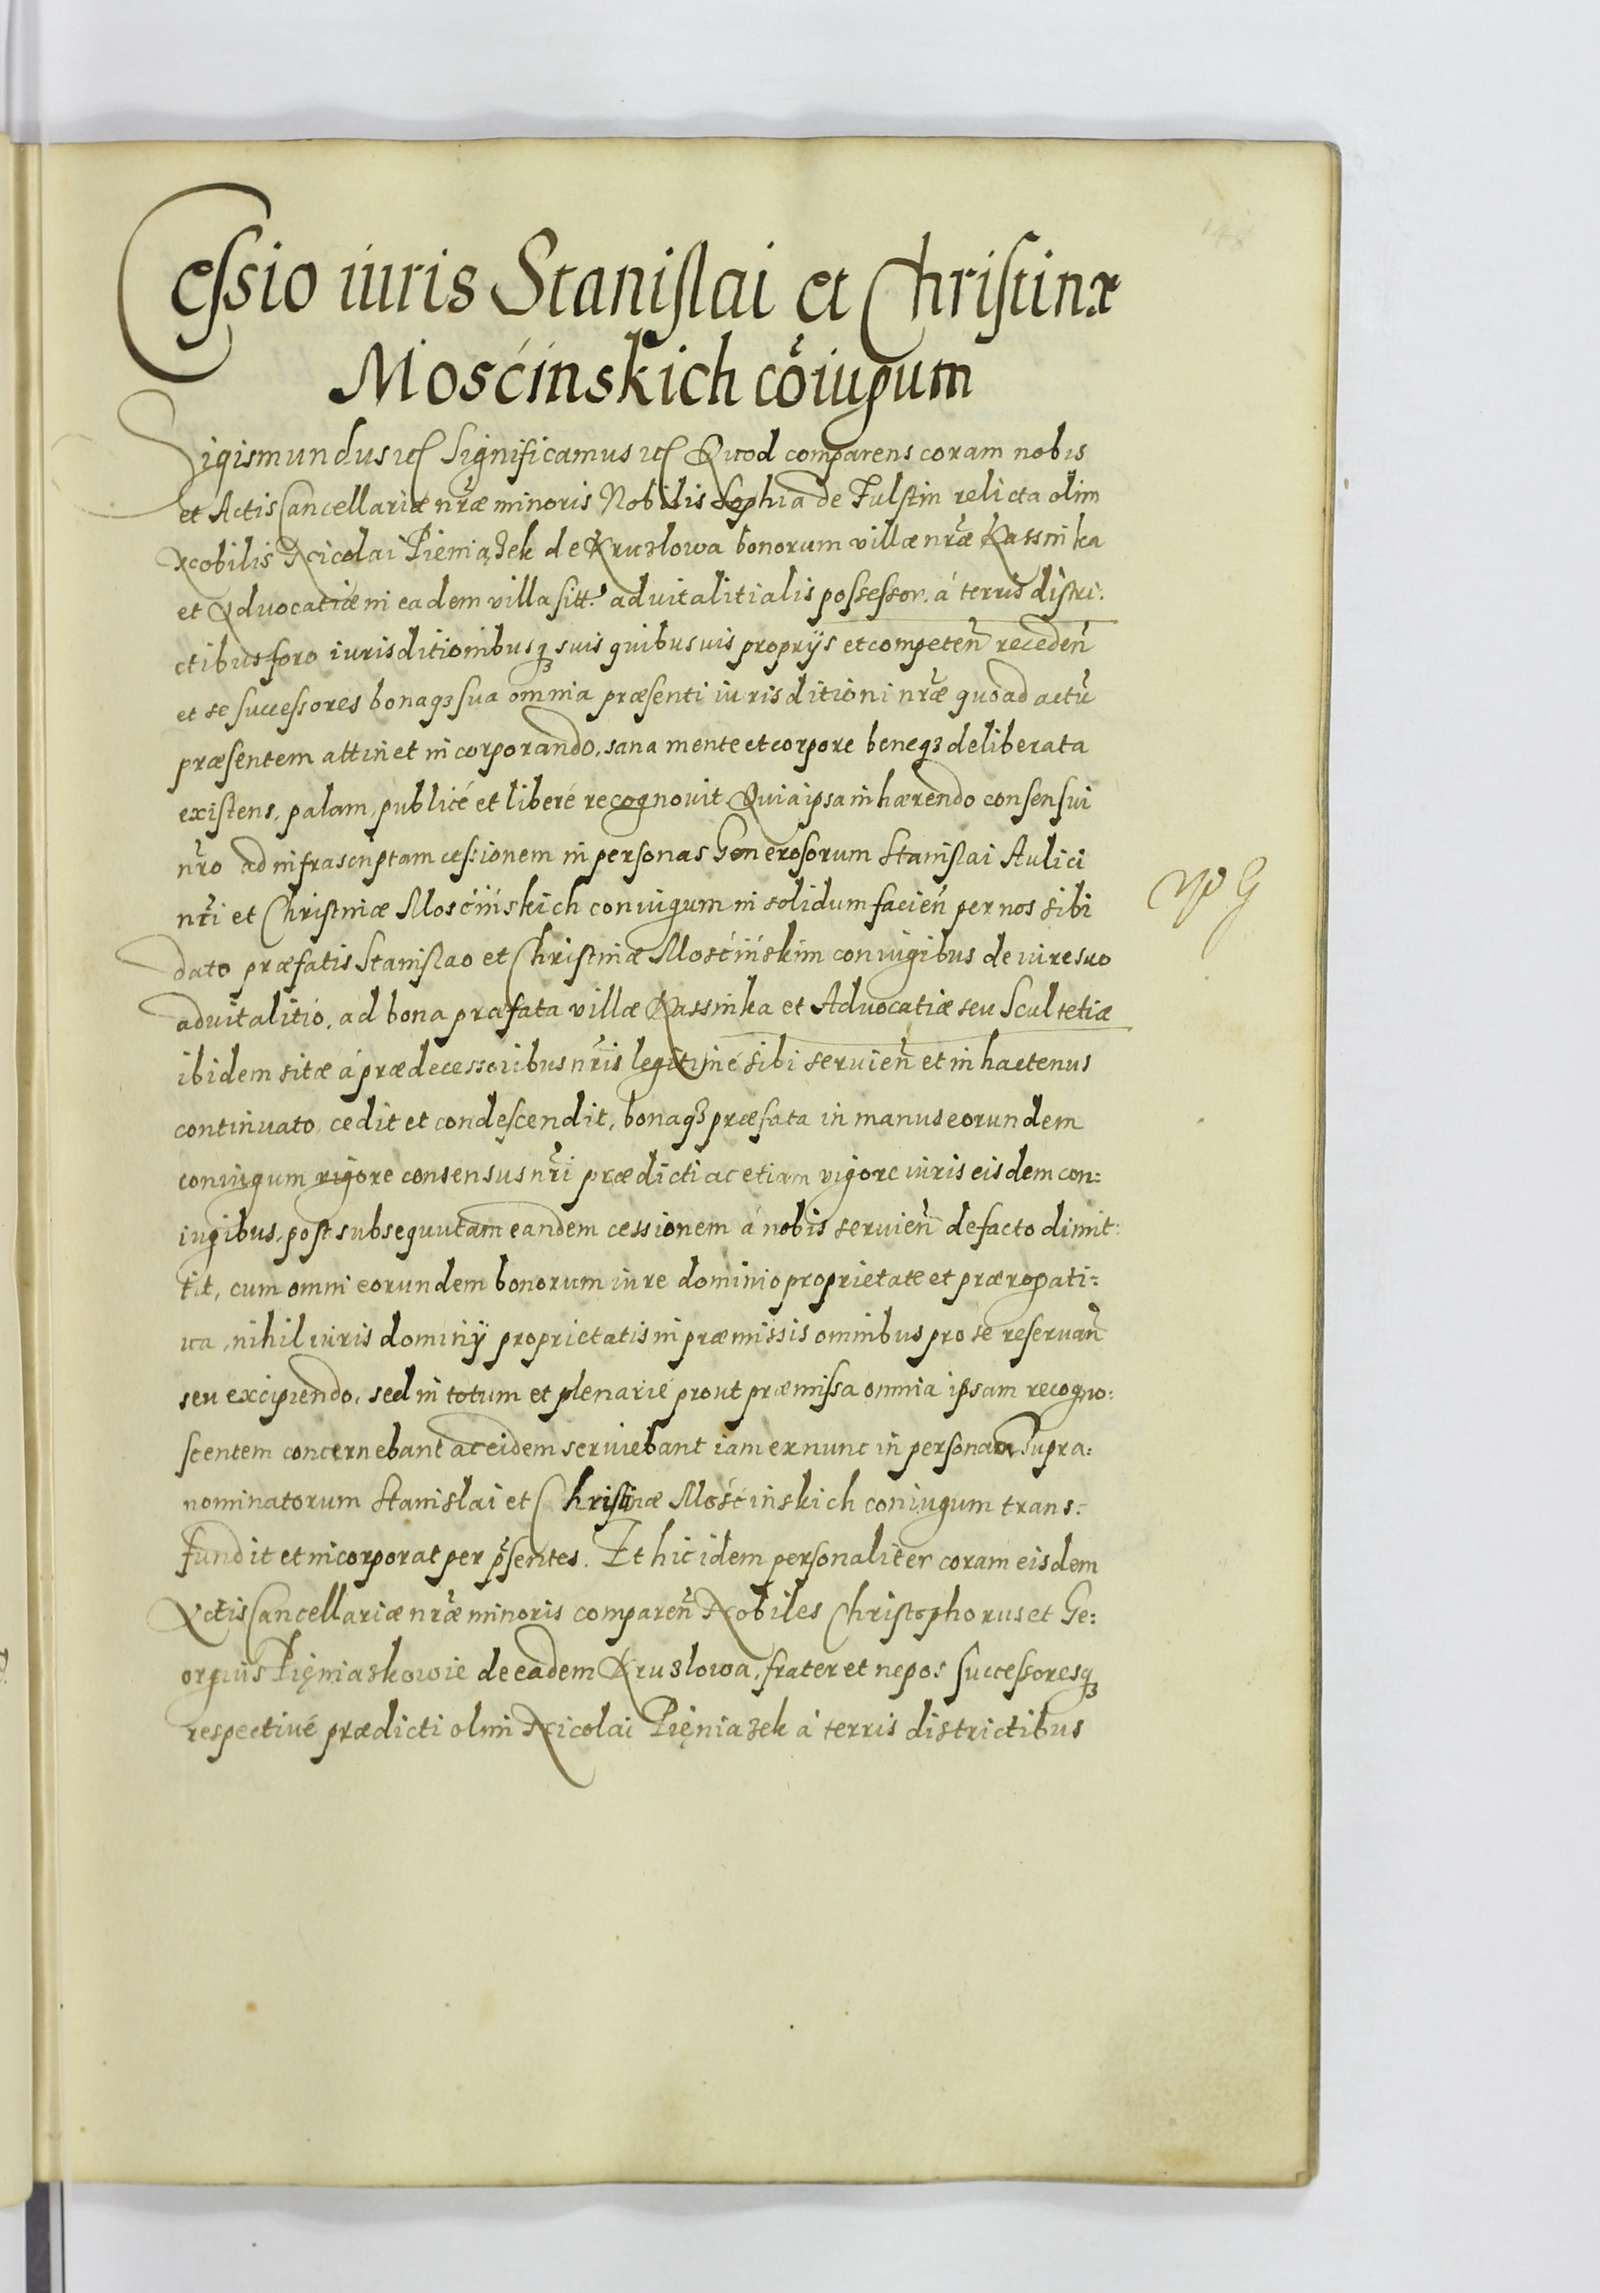 Cessio iuris Stanislai et Christinæ
Mosćinskich cõiugum
Sigismundus etc Significamus etc Quod comparens coram nobis
et Actis Cancellariæ nr̃æ minoris Nobilis Sophia de Fulstin relicta olim
Nobilis Nicolai Pieniążek de Kruzlowa bonorum villæ nr̃æ Kassinka
et Advocatiæ in eadem villa sitt. advitalitialis possessor. á terris distri:
ctibus foro iurisditionibusq₃ suis quibusuis proprijs et competen̄ receden̄
et se successores bonaq₃ sua omnia præsenti iurisditioni nr̃æ quoad actū
præsentem attinet incorporando, sana mente et corpore beneq₃ deliberata
existens, palam, publicé et liberé recognovit Quia ipsa inhærendo consensui
nr̃o ad infrascriptam cessionem in personas Generosorum Stanislai Aulici
nr̃i et Christinæ Mosćińskich coniugum in solidum facień per nos sibi
dato præfatis Stanislao et Christinæ Mosćińskim coniugibus de iure suo
aduitalitio, ad bona præfata villæ Kassinka et Advocatiæ seu Scultetiæ
ibidem sitæ á prædecessoribus nr̃is legitimé sibi seruien̄ et in hactenus
continuato, cedit et condescendit, bonaq₃ præfata in manus eorundem
coniugum rigore consensus nr̃i prædicti ac etiam vigore iuris eisdem con:
iugibus, post subsequutam eandem cessionem á nobis seruien̄ de facto dimit:
tit, cum omni eorundem bonorum iure dominio proprietate et prærogati:
ua, nihil iuris dominij proprietatis in præmissis omnibus pro se reservan̄
seu excipiendo, sed in totum et plenarié prout præmissa omnia ipsam recogno:
scentem concernebant ac eidem serviebant iam ex nunc in personam supra:
nominatorum Stanislai et Christinæ Mosćinskich coniugum trans:
fundit et incorporat per p̄sentes. Et hic idem personaliter coram eisdem
Actis Cancellariæ nr̃æ minoris comparen̄ Nobiles Christophorus et Ge:
orgius Pięniaskowie de eadem Kruslowa, frater et nepos successoresq₃
respectivé prædicti olim Nicolai Pięniazek á terris districtibus